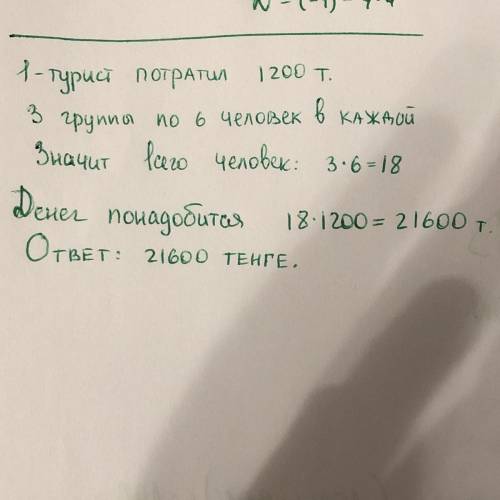 1-турист потратил 1200 т.
3 группы по 6 человек в каждой
Значит всего человек: 3·6=18
Денег понадобится 18·1200=21600 т.
Ответ: 21600 тенге.